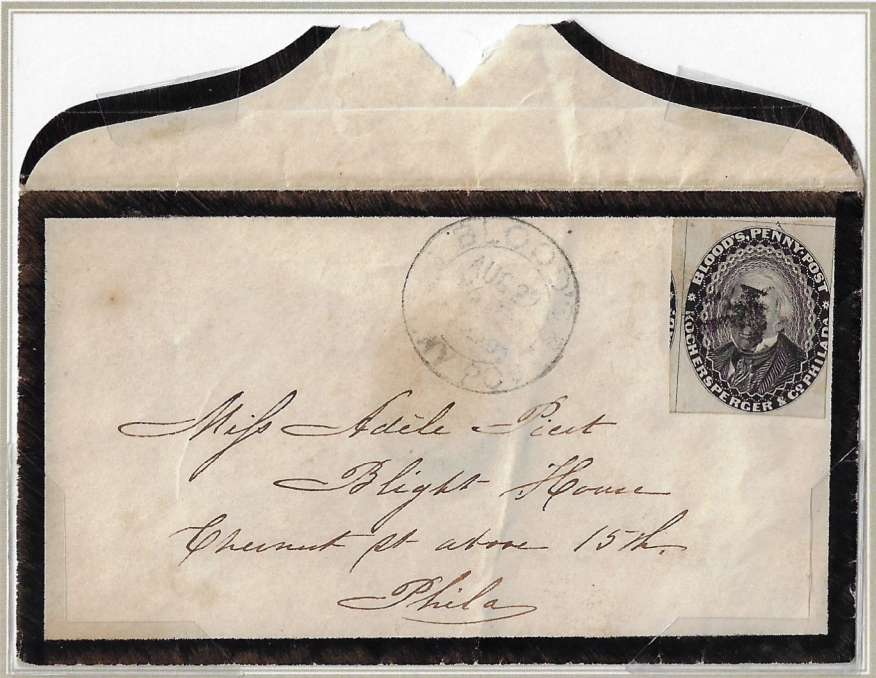 BLOOD'S
AUG 29
BLOOD'S, PENNY-POST
KOCHERSPERGER & CO PHILADA
Miss Adèle Picot
Blight House
Chesnut st above 15th.
Phila